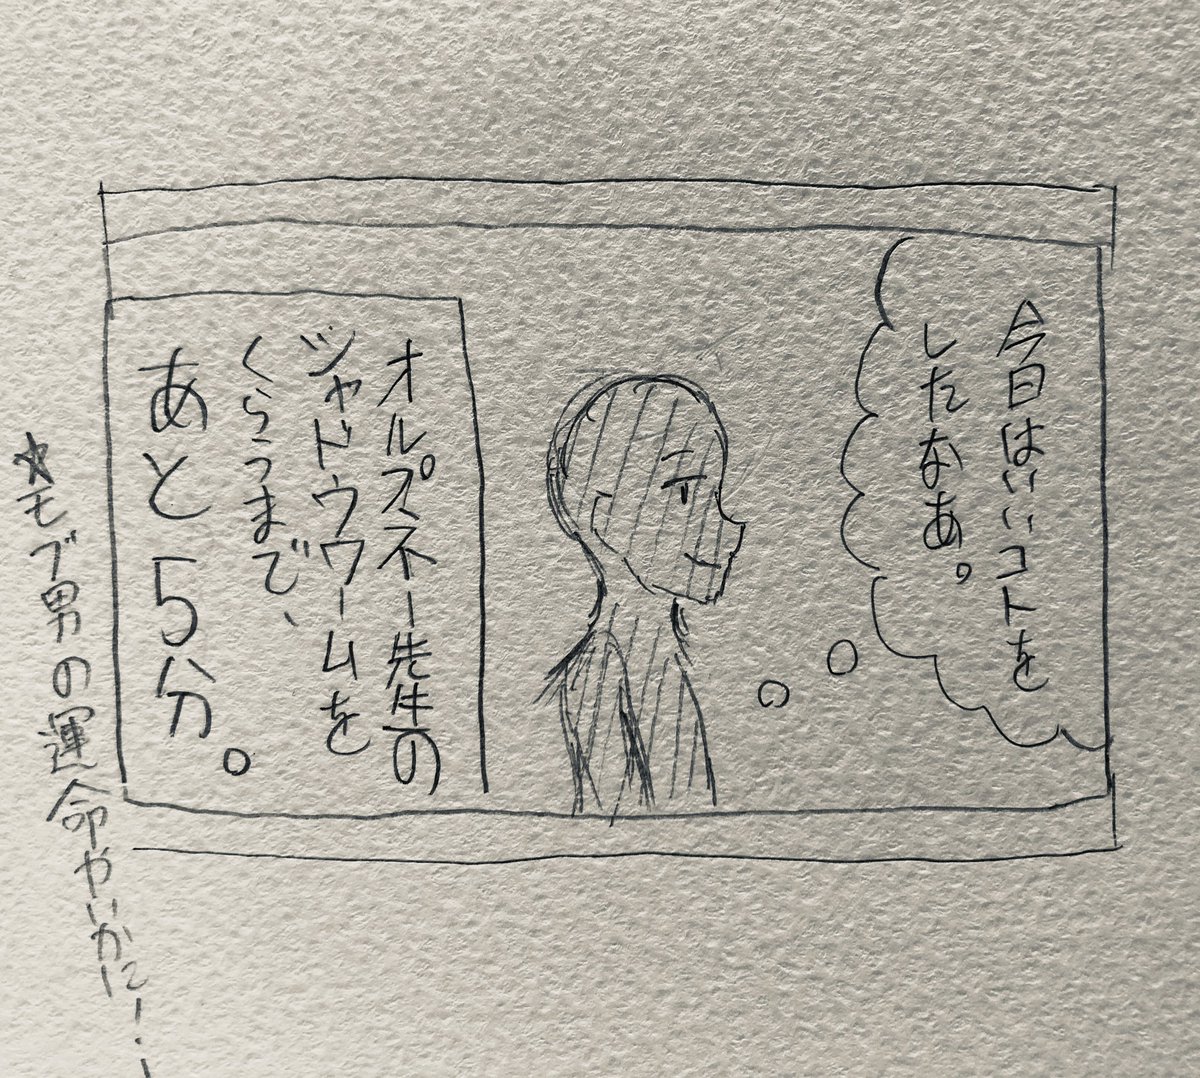 今日はいいコトを
したなあ。
オルズネー先生の
シャドウウームを
くらうまで、
あと5分。
☆モブ男の運命やいかに!...